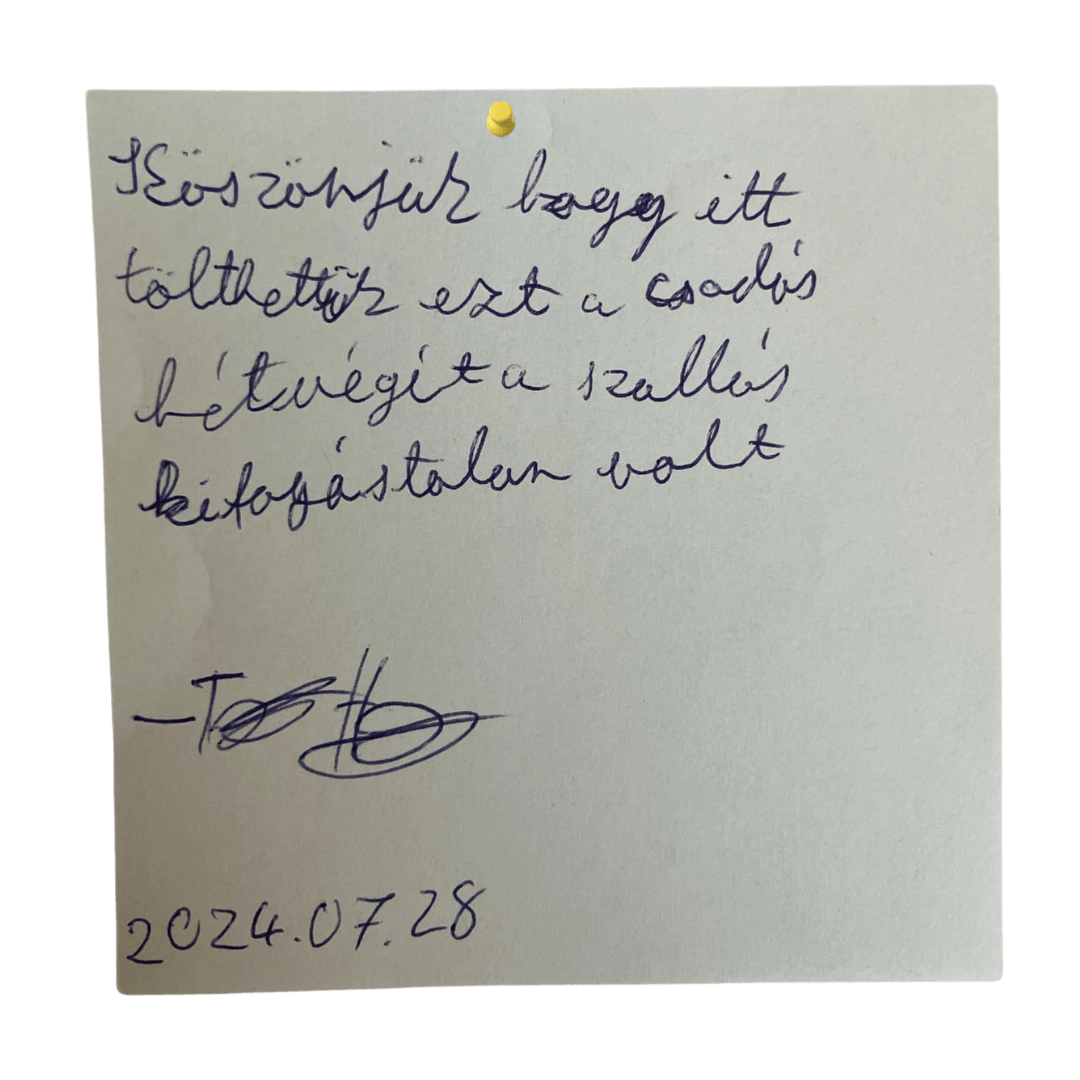 Köszönjük hogy itt
tölthettük ezt a csodás
hétvégét a szallás
kifogástalan volt
2024.07.28